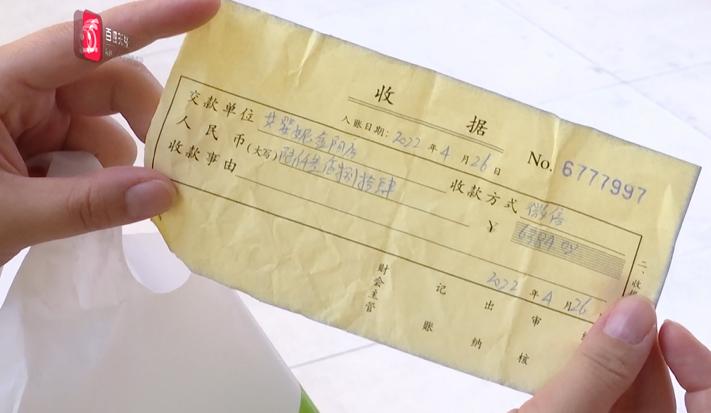 收 据
入账日期: 2022 年 4 月 26 日
No. 6777997
交款单位 收款方式 微信
人民币(大写) 陆仟叁佰捌拾肆 ¥ 6384.00
收款事由
2022 年 4 月 26
财会主管 记账 出纳 审核